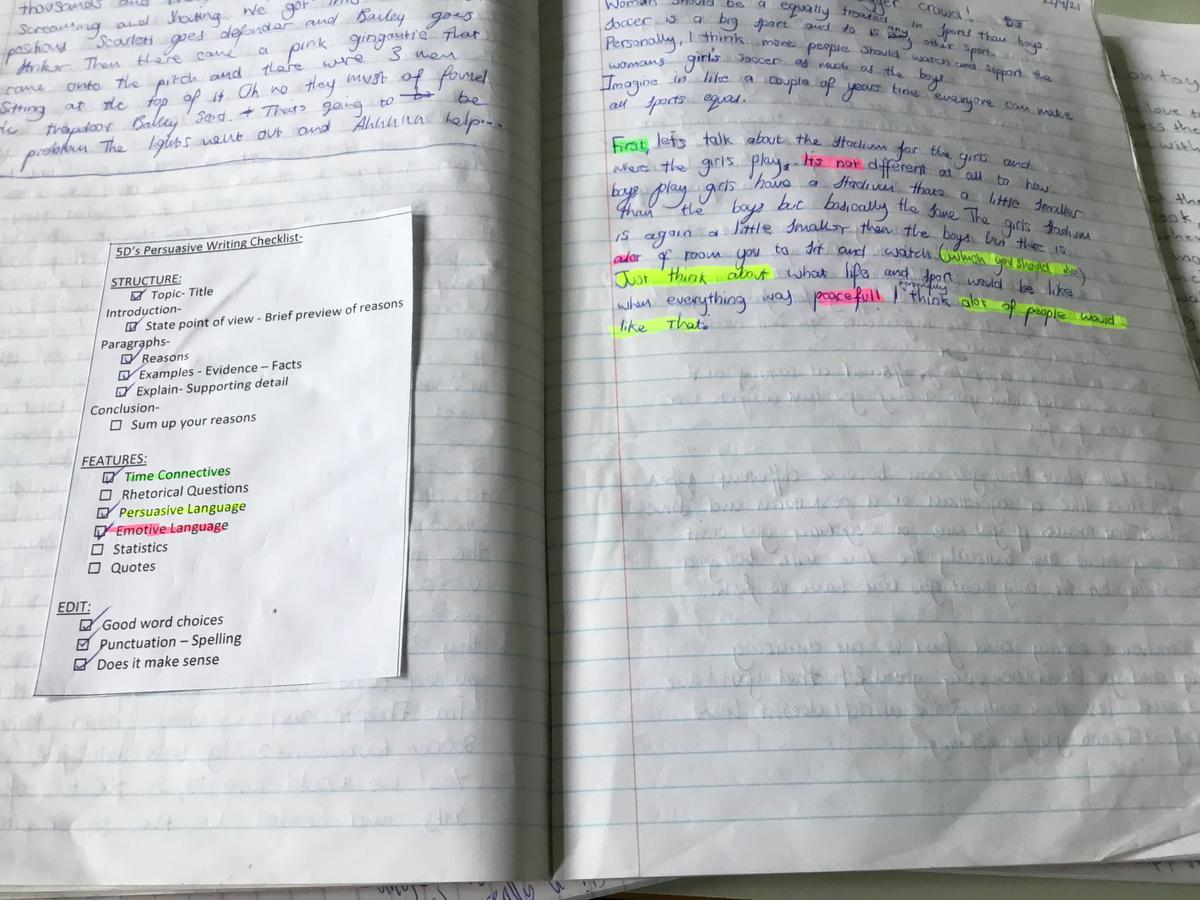 thousands and
Screaming and shouting. We got
positions Scarlett goes defender and Bailey goes
striker. Then there came a pink gingantic that
came onto the pitch and there were 3 men
Sitting at the top of it Oh no they must of found
trapdoor Bailey Said. Thats going to be
problem The lights went out and Ahhhhh help...
5D's Persuasive Writing Checklist-
STRUCTURE:
Topic- Title
Introduction-
State point of view - Brief preview of reasons
Paragraphs-
Reasons
Examples - Evidence – Facts
Explain- Supporting detail
Conclusion-
Sum up your reasons
FEATURES:
Time Connectives
Rhetorical Questions
Persuasive Language
Emotive Language
Statistics
Quotes
EDIT:
Good word choices
Punctuation – Spelling
Does it make sense
crowd!
Woman should be a equally treated in sports than boys.
Soccer is a big sport and so is other sports.
Personally, I think more people should watch and support the
womans girl's soccer as much as the boys
Imagine in like a couple of years time everyone can make
all sports equal.
First, lets talk about the stadium for the girls and
where the girls play. Its not different at all to how
boys play girls have a stadium thats a little smaller
than the boys but basically the same The girls stadium
is again a little smaller then the boys but ther is
alot of room you to sit and watch (which you should do)
Just think about what life and sport would be like
when everything was peacefull I personally think alot of people would
like that.